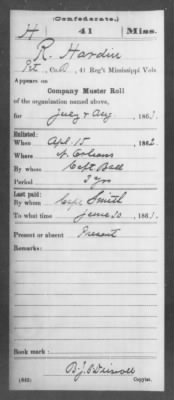 (Confederate.)
H 41 Miss.
R. Hardin
Pvt, Co. D, 41 Reg't Mississippi Vols
Appears on
Company Muster Roll
of the organization named above,
for July & Aug, 186
Enlisted:
When Apl. 15, 1862
Where N. Orleans
By whom Capt Ball
Period 3 yrs
Last paid:
By whom Capt Smith
To what time June 30, 186
Present or absent Present
Remarks:
Book mark:
(642) Copyist.